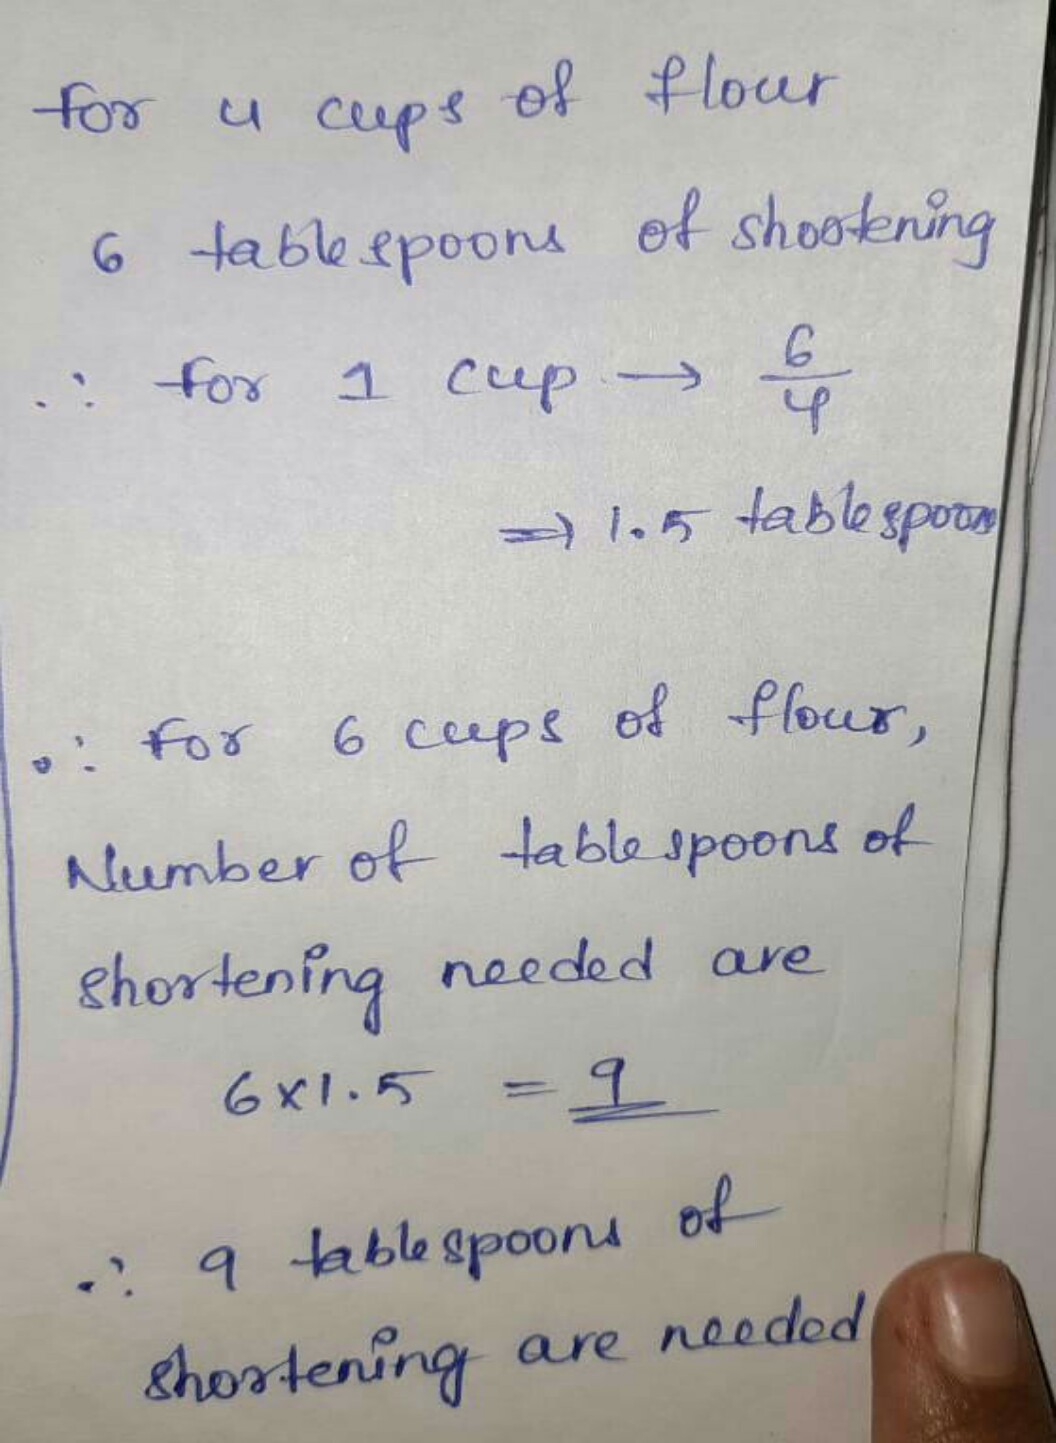 for 4 cups of flour
6 tablespoons of shortening
∴ for 1 cup → 6/4
⇒ 1.5 tablespoons
∴ for 6 cups of flour,
Number of tablespoons of
shortening needed are
6×1.5 = 9
∴ 9 tablespoons of
shortening are needed